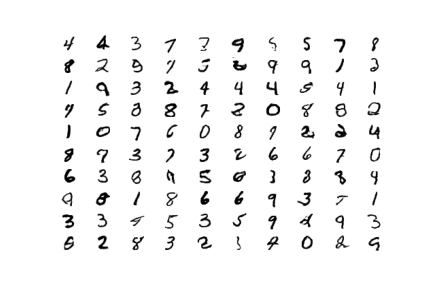 4 4 3 7 7 9 5 5 7 8
8 2 9 7 5 2 9 9 1 2
1 9 3 2 4 4 4 5 4 1
4 5 8 8 7 2 0 8 8 2
1 0 7 6 0 8 9 2 2 4
8 9 3 7 3 2 6 6 7 0
6 3 8 5 6 3 8 8 9
9 1 8 6 6 9 3 1
3 3 5 3 5 9 9 3
2 8 3 2 0 2 9